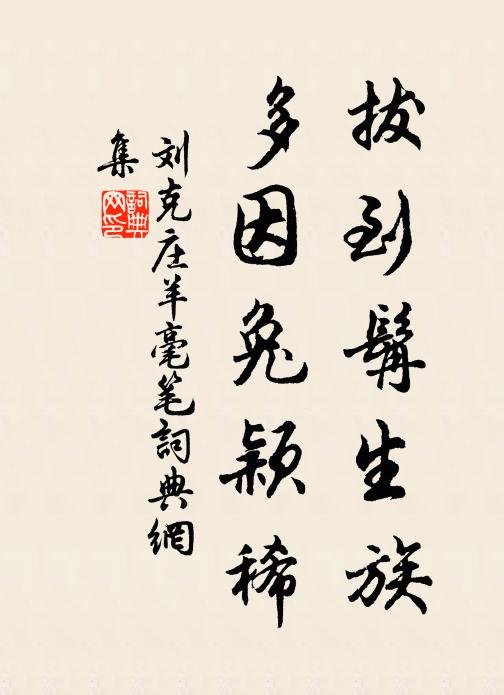 拔到髯生族
多因兔颖稀
刘克庄羊毫笔詞典網
集
詞典网印